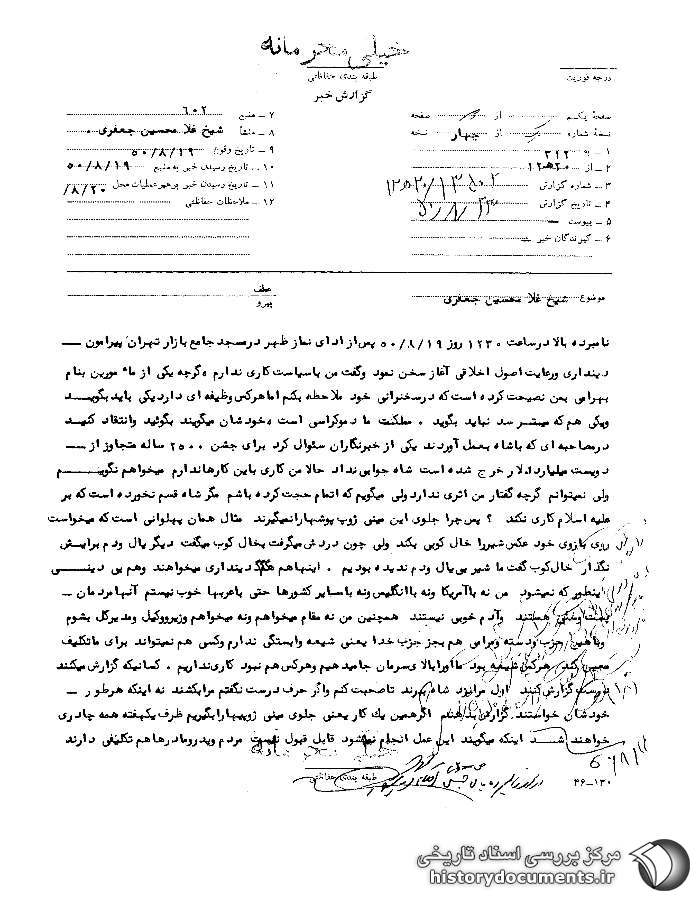 خیلی محرمانه
طبقه بندی حفاظتی
درجه فوریت
گزارش خبر
صفحهٔ یکم از صفحه
نسخهٔ شماره از چهار نسخه
۱ – به ۳۱۲
۲ – از ۲۰ه۱۲
۳ – شماره گزارش
۴ – تاریخ گزارش
۵ – پیوست
۶ – گیرندگان خبر
۷ – منبع ۶۰۲
۸ – منشأ شیخ غلا محسین جعفری
۹ – تاریخ وقوع ۵۰/۸/۱۹
۱۰ – تاریخ رسیدن خبر به منبع ۵۰/۸/۱۹
۱۱ – تاریخ رسیدن خبر برهبر عملیات محل /۸/۲۰
۱۲ – ملاحظات حفاظتی
موضوع شیخ غلا محسین جعفری
عطف
پیرو
نامبرده بالا درساعت ۱۲۳۰ روز ۵۰/۸/۱۹ پس از ادای نماز ظهر درمسجد جامع بازار تهران پیرامون
دینداری ورعایت اصول اخلاقی آغاز سخن نمود وگفت من باسیاست کاری ندارم هگرچه یکی از مأمورین بنام
بهرامی بمن نصیحت کرده است که درسخنرانی خود ملاحظه بکنم اماهرکس وظیفه ای دارد یکی باید بگوید
ویکی هم که میترسد نباید بگوید . مملکت ما دموکراسی است هخودشان میگویند بگوئید وانتقاد کنید
درمصاحبه ای که باشاه بعمل آوردند یکی از خبرنگاران سئوال کرد برای جشن ۲۵۰۰ ساله متجاوز از
دویست میلیارد دلار خرج شده است شاه جوابی نداد حالا من کاری باین کارها ندارم میخواهم نگویم
ولی نمیتوانم گرچه گفتار من اثری ندارد ولی میگویم که اتمام حجت کرده باشم مگر شاه قسم نخورده است که بر
علیه اسلام کاری نکند ؟ پس چرا جلوی این مینی ژوب پوشها رانمیگیرند مثال همان پهلوانی است که میخواست
روی بازوی خود عکس شیررا خال کوبی بکند ولی چون دردش میگرفت بخال کوب میگفت دیگر یال ودم برایش
نگذار خال کوب گفت ما شیر بی یال ودم ندیده بودیم . اینها هم دینداری میخواهند وهم بی دینی
اینطور که نمیشود من نه باآمریکا ونه باانگلیس ونه باسایر کشورها حتی باعربها خوب نیستم آنها مردمان
هستند وآدم خوبی نیستند همچنین من نه مقام میخواهم ونه میخواهم وزیرووکیل ومدیرکل بشوم
حزب ودسته وبرامی هم بجز حزب خدا یعنی شیعه وابستگی ندارم وکسی هم نمیتواند برای ماتکلیف
معین کند هرکس شیعه بود ماآورا بالای سرمان جا میدهیم وهرکس هم نبود کاری نداریم . کسانیکه گزارش میکنند
درست گزارش کنند اول مرا نزد شاه ببرند تاصحبت کنم واگر حرف درست نگفتم مرا بکشند نه اینکه هرطور
خودشان خواستند گزارش بدهند اگر همین یک کار یعنی جلوی مینی ژوپیها رابگیریم ظرف یکهفته همه چادری
خواهند شد اینکه میگویند این عمل انجام نمیشود قابل قبول نیست مردم وپدرومادرها هم تکلیفی دارند
طبقه بندی حفاظتی
۴۶–۱۳۰
مرکز بررسی اسناد تاریخی
historydocuments.ir